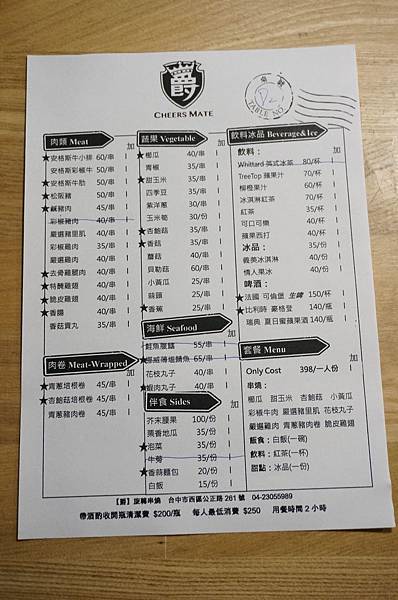 爵
CHEERS MATE
桌號
TABLE NO.
肉類 Meat
加
★安格斯牛小排 60/串
安格斯彩椒牛 50/串
★安格斯牛肋 50/串
★松阪豬 50/串
★鹹豬肉 45/串
彩椒豬肉 40/串
嚴選豬里肌 40/串
彩椒雞肉 35/串
嚴選雞肉 40/串
★去骨雞腿肉 40/串
★特醃雞翅 40/串
★脆皮雞翅 40/串
★香腸 40/串
香菇貢丸 35/串
肉卷 Meat-Wrapped
加
★青蔥培根卷 45/串
★杏鮑菇培根卷 45/串
青蔥豬肉卷 50/串
蔬果 Vegetable
加
★櫛瓜 40/串
青椒 35/串
★甜玉米 35/串
四季豆 35/串
紫洋蔥 30/串
玉米筍 30/份
★杏鮑菇 35/串
★香菇 35/串
蘑菇 40/串
貝勒菇 60/份
小黃瓜 25/串
蒜頭 25/串
★香蕉 25/串
海鮮 Seafood
加
鮭魚腹鰭 55/串
★挪威薄鹽鯖魚 65/串
花枝丸子 40/串
★蝦肉丸子 40/串
伴食 Sides
加
芥末腰果 100/份
栗香地瓜 35/份
★泡菜 35/份
牛蒡 35/份
★香蒜麵包 20/份
白飯 15/份
飲料冰品 Beverage&Ice
飲料：
加
Whittard 英式冰茶 80/杯
TreeTop 蘋果汁 70/杯
柳橙果汁 60/杯
冰淇淋紅茶 70/杯
紅茶 35/杯
可口可樂 40/杯
蘋果西打 40/杯
冰品： 35/份
義美冰淇淋 40/份
情人果冰 40/份
啤酒：
★法國 可倫堡 生啤 150/杯
★比利時 豪格登 140/瓶
瑞典 夏日蜜蘋果酒 140/瓶
套餐 Menu
加
Only Cost 398/一人份
串燒：
櫛瓜 甜玉米 杏鮑菇 小黃瓜
彩椒牛肉 嚴選豬里肌 花枝丸子
嚴選雞肉 青蔥豬肉卷 脆皮雞翅
飯食：白飯(一碗)
飲料：紅茶(一杯)
甜點：冰品(一份)
【爵】旋轉串燒 台中市西區公正路 261 號 04-23055989
帶酒酌收開瓶清潔費 $200/瓶 每人最低消費 $250 用餐時間 2 小時